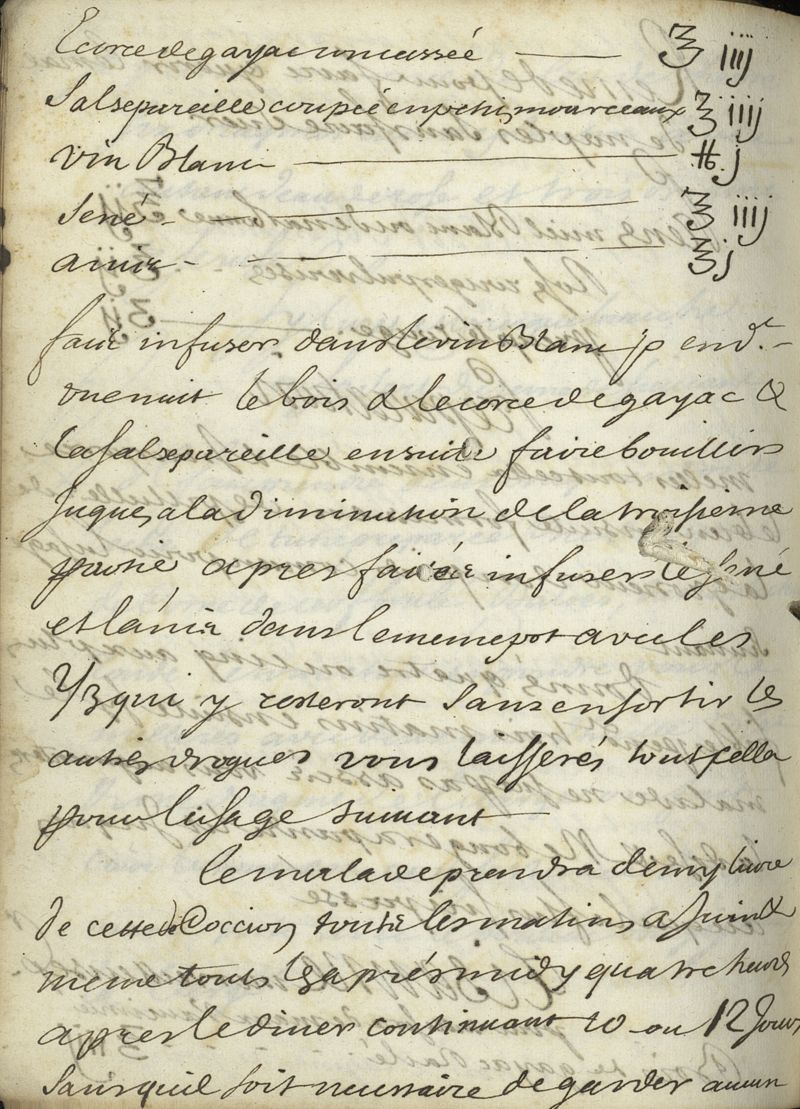 Ecorce de gayac concassée ℥ iiij
Salsepareille coupée en petis mourceaux ℥ iiij
vin Blanc ℔ j
Sené ʒ iiij
anis ʒ j
faire infuser dans le vin Blanc pend.t
une nuit le bois & lecorce de gayac &
la salsepareille ensuite faire bouillir
Juques a la diminution de la troisieme
partie apres faire infuser le sené
et lanis dans le meme pot avec les
2/3 qui y resteront sans en sortir les
autres drogues vous laisserés tout cella
pour lusage suivant
le malade prendra demy livre
de cette decoction touts les matins a Jeun &
meme touts les aprés midy quatre heures
apres le diner continuant 10 ou 12 Jours
sans quil soit necessaire de garder aucun